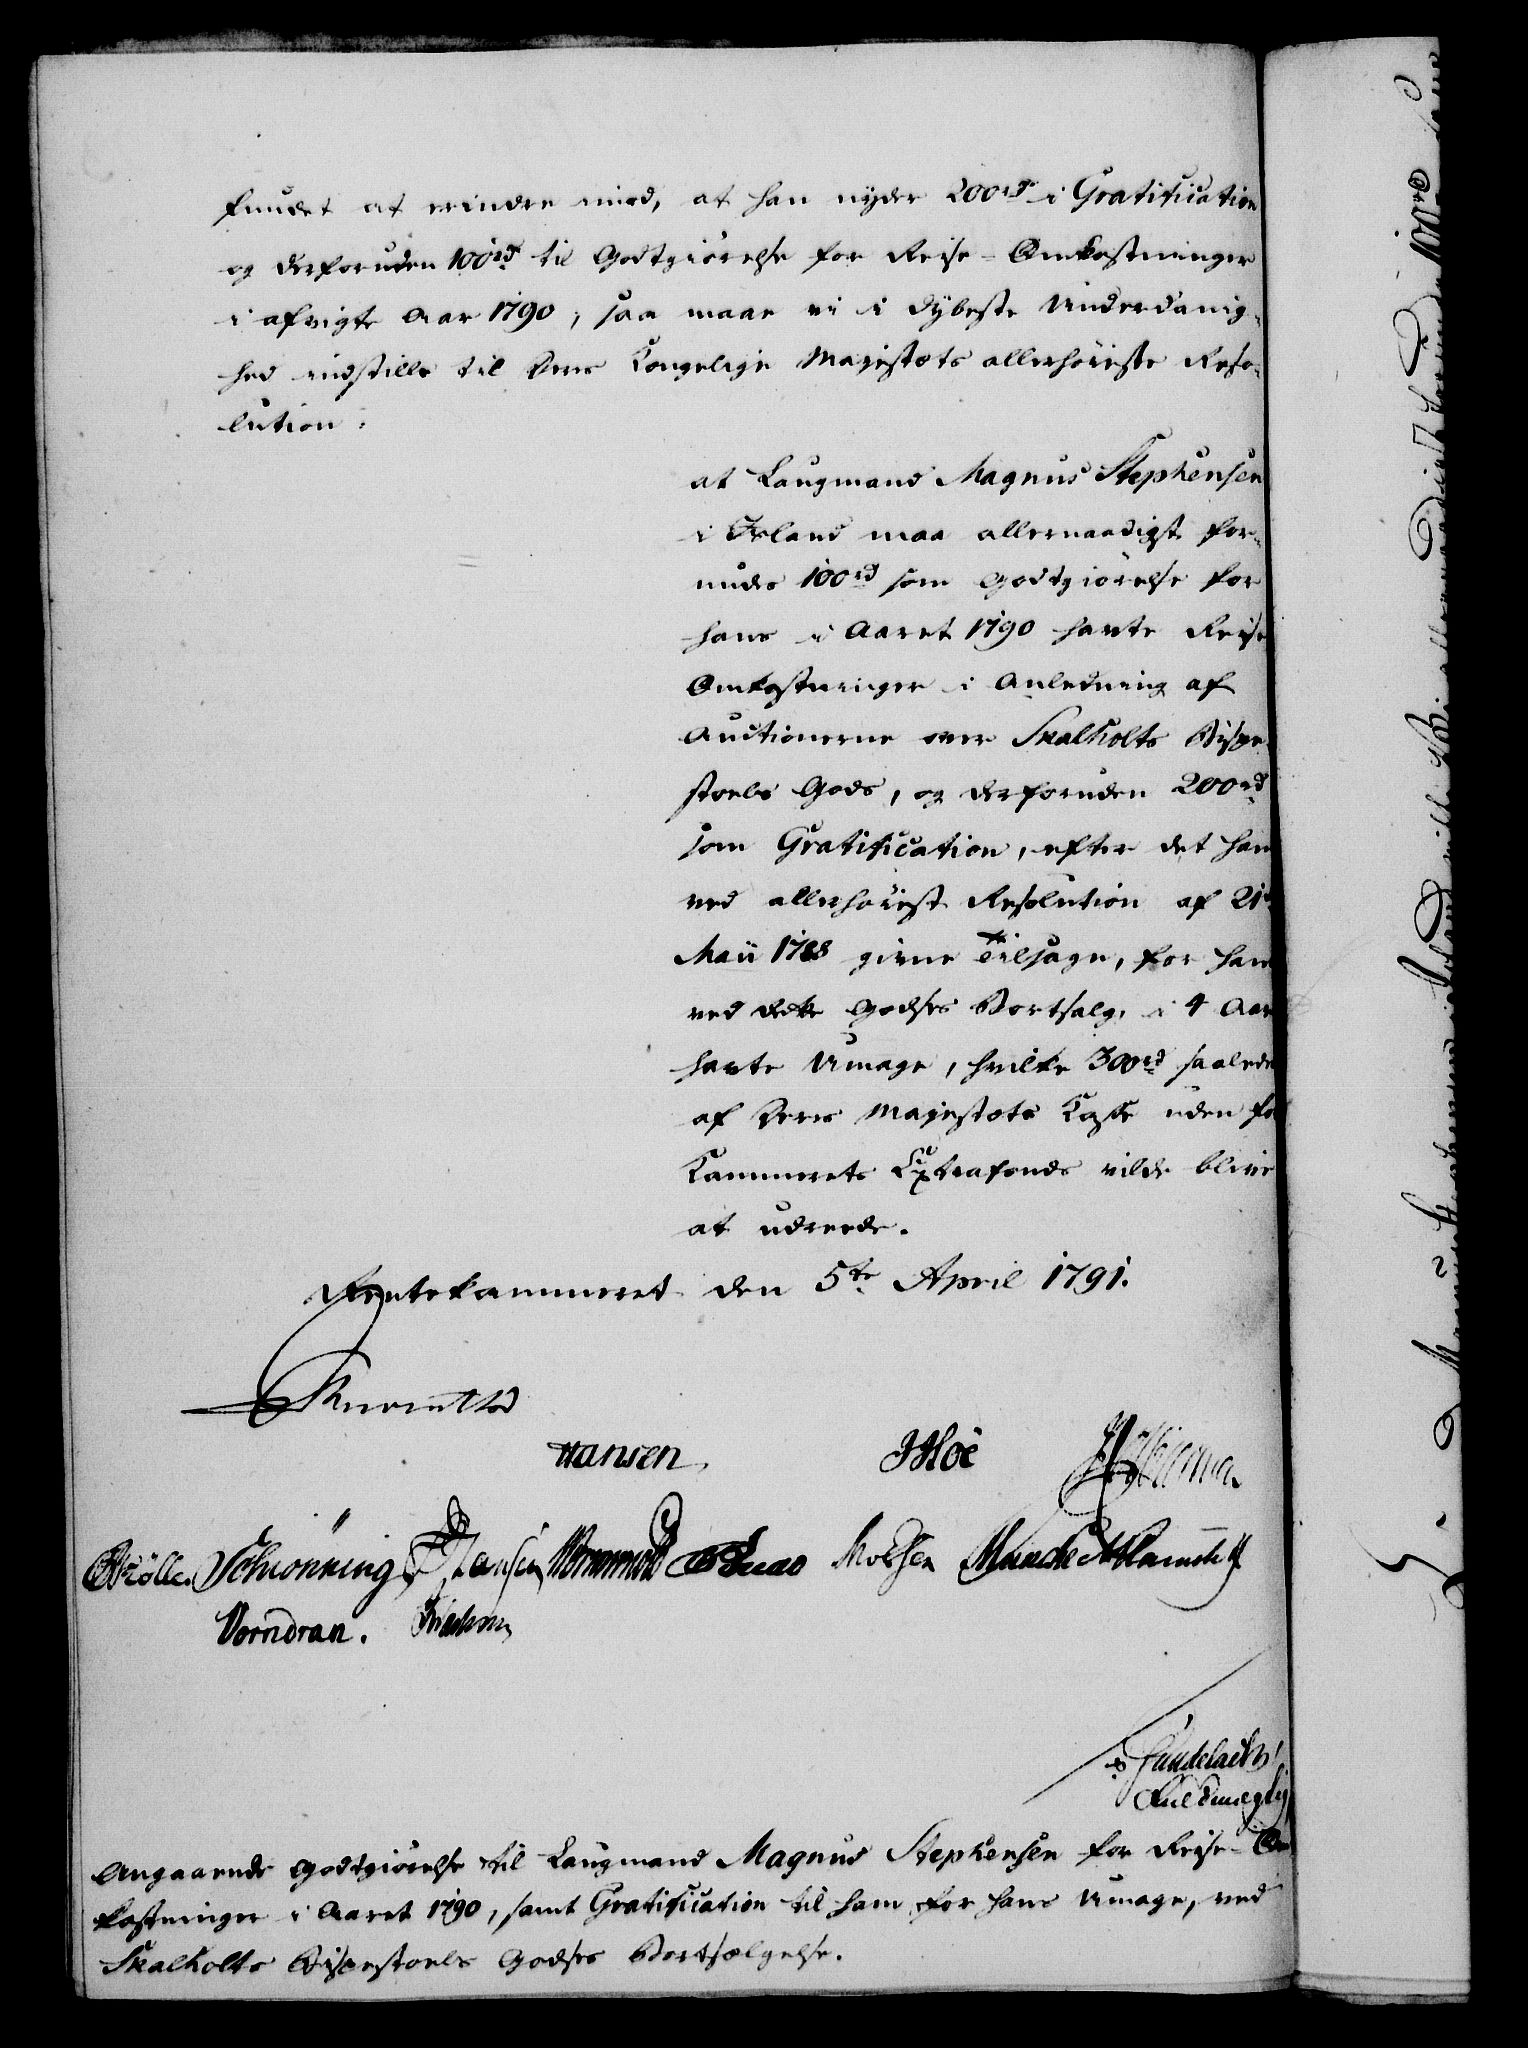 fundet at erindre imod, at han nyder 200rd i Gratification
og desforuden 100rd til Godtgiörelse for Reise-Omkostninger
i afvigte Aar 1790, saa maae vi i dybeste Underdanig-
hed indstille til Deres Kongelige Majestæts allerhöieste Reso-
lution:
at Laugmand Magnus Stephensen
i Island maa allernaadigst for-
undes 100rd som Godtgiörelse for
hans i Aaret 1790 havte Reise
Omkostninger i Anledning af
Auctionerne over Skalholts Bispe-
stoels Gods, og desforuden 200rd
som Gratification, efter det ham
ved allerhöiest Resolution af 21de
Maii 1788 givne Tilsagn, for hans
ved dette Godses Bortsalg i 4 Aar
havte Umage, hvilke 300rd saaledes
af Deres Majestæts Kasse uden for
Kammerets Extrafonds vilde blive
at udrede.
Rentekammeret den 5te April 1791.
Hansen
JHoë
Schiönning Hansen Wormskiold Munche
Vorndran.
Gundelach
Fuldmægtig
Angaaende Godtgiörelse til Laugmand Magnus Stephensen for Reise-Om-
kostninger i Aaret 1790, samt Gratification til ham for hans Umage, ved
Skalholts Bispestoels Godses Bortsælgelse.